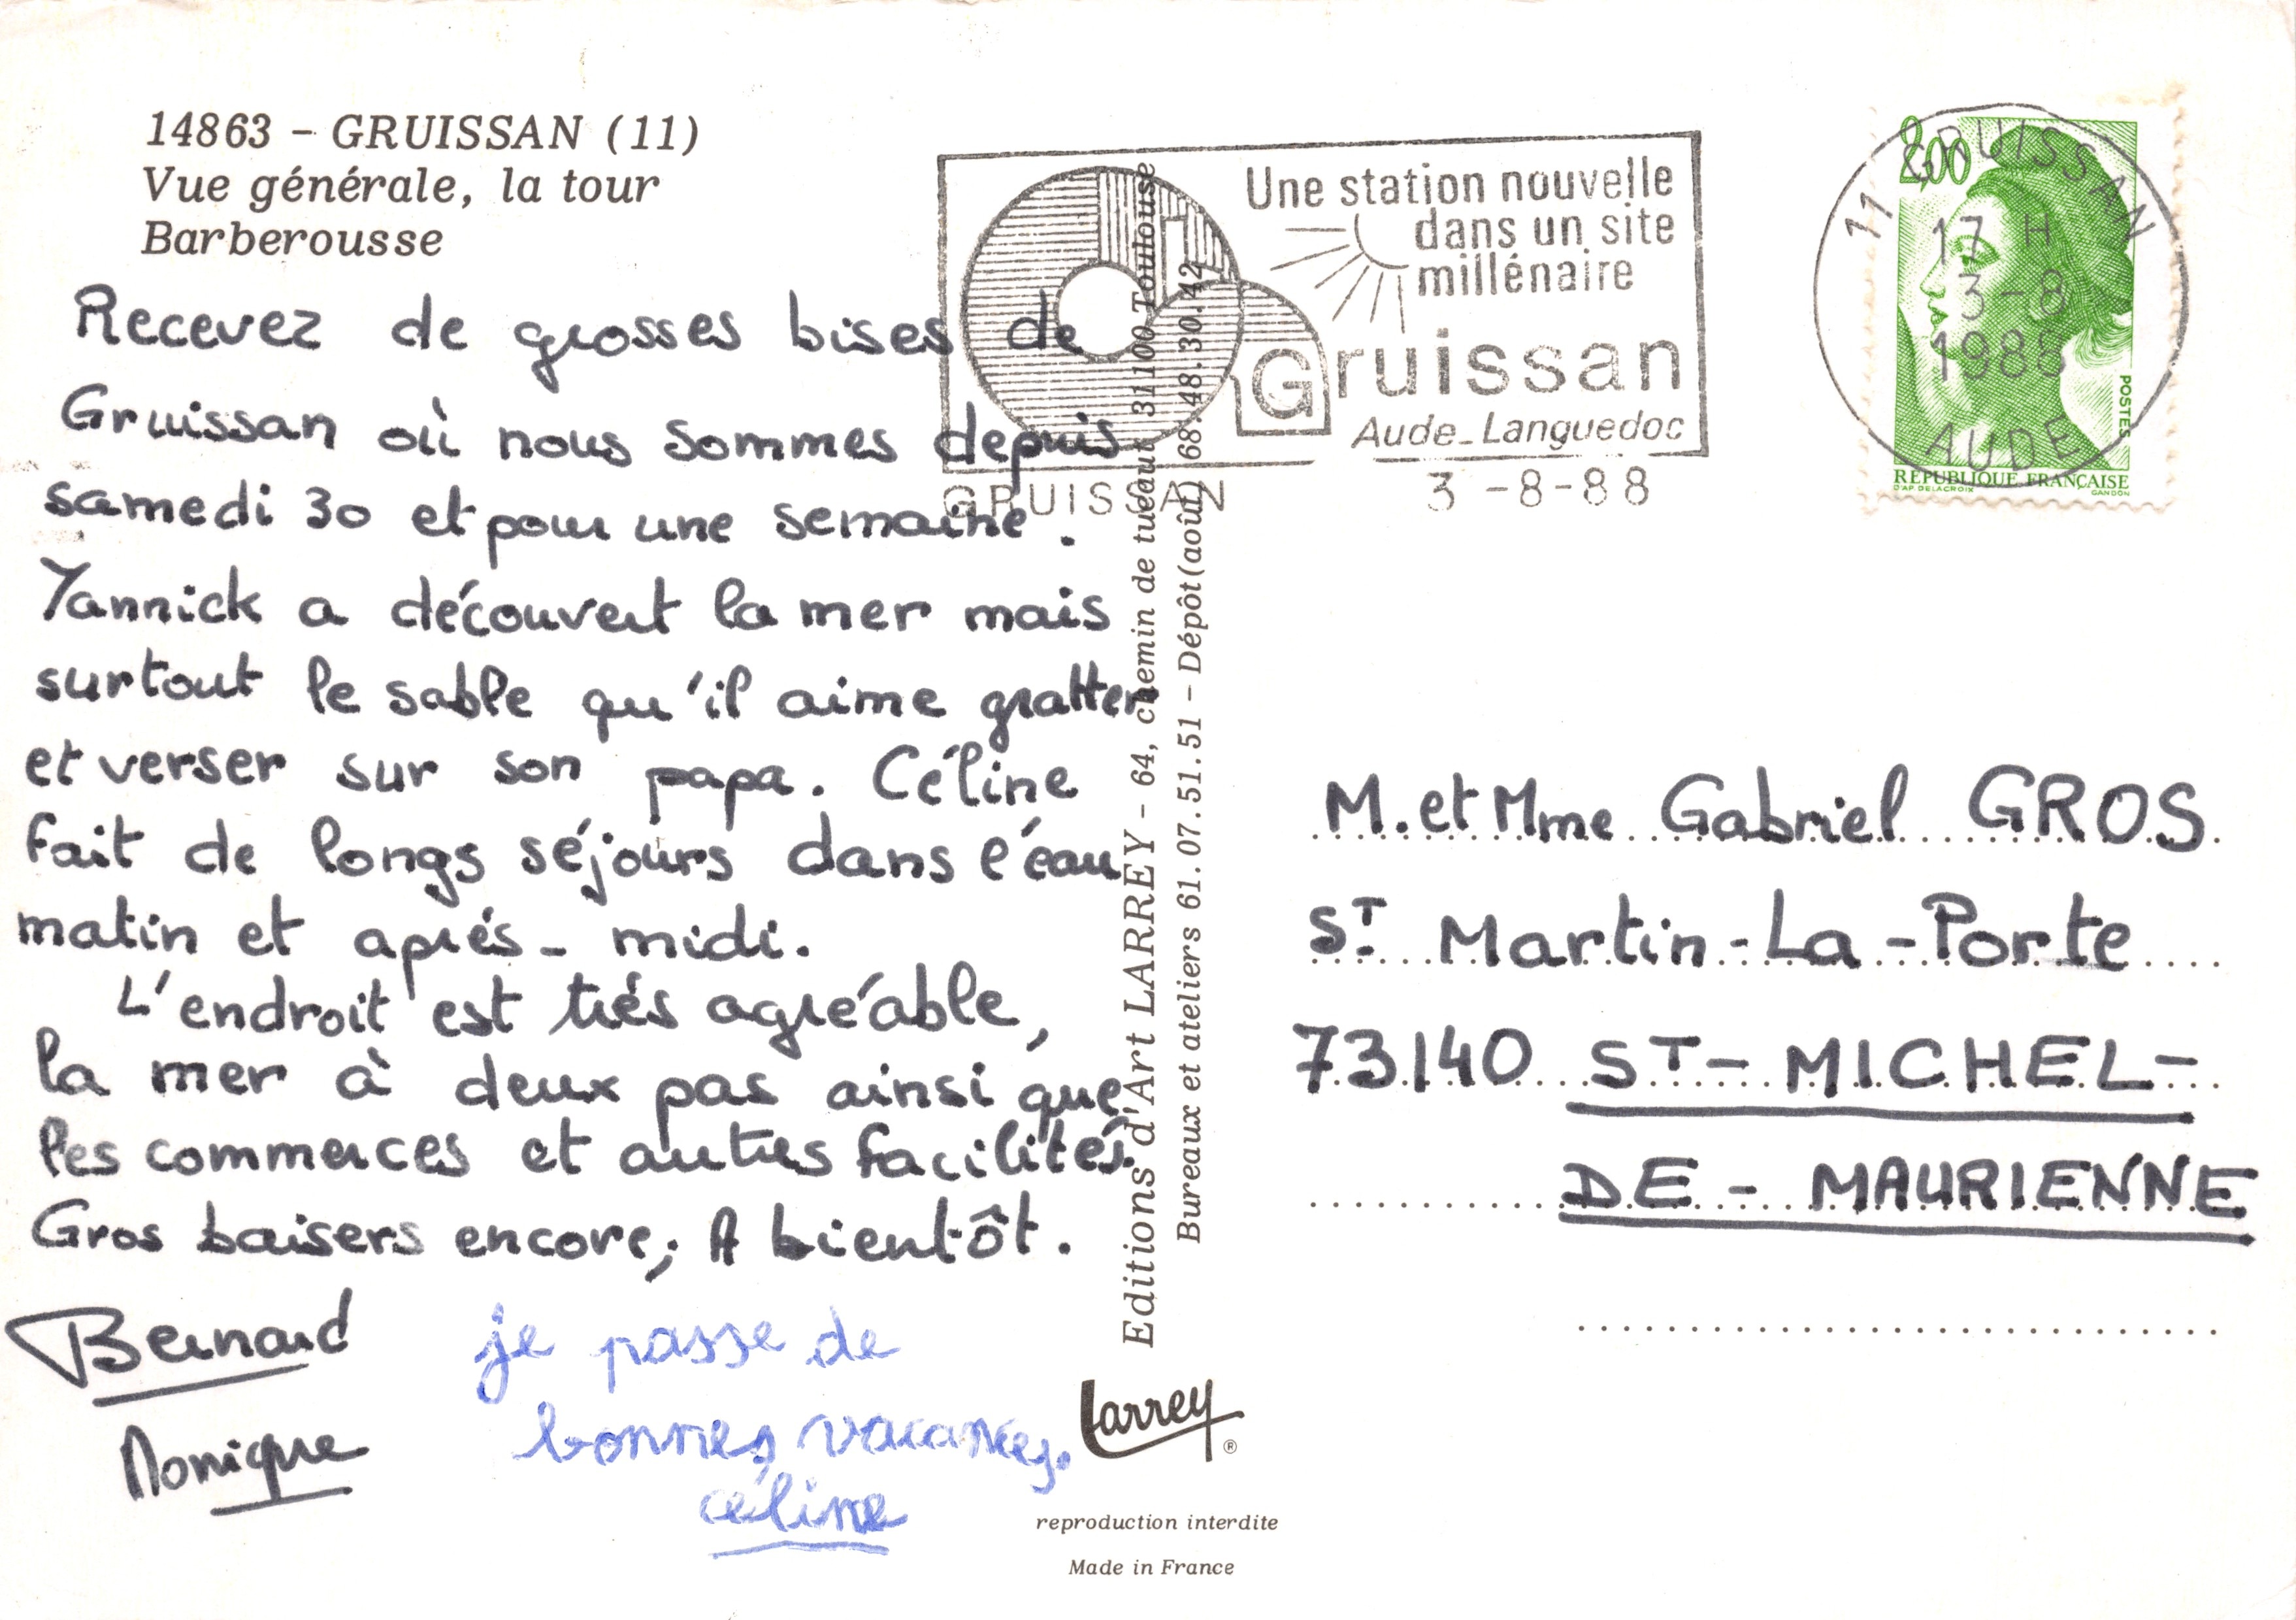 14863 - GRUISSAN (11)
Vue générale, la tour
Barberousse
Recevez de grosses bises de
Gruissan où nous sommes depuis
samedi 30 et pour une semaine.
Yannick a découvert la mer mais
surtout le sable qu'il aime gratter
et verser sur son papa. Céline
fait de longs séjours dans l'eau
matin et aprés-midi.
L'endroit est trés agréable,
la mer à deux pas ainsi que
les commerces et autres facilités.
Gros baisers encore, A bientôt.
Bernard
Monique
je passe de
bonnes vacances.
céline
Editions d'Art LARREY - 64, chemin de tucaut 31100 Toulouse
Bureaux et ateliers 61.07.51.51 - Dépôt (août) 68.48.30.42
Larrey ®
reproduction interdite
Made in France
Une station nouvelle
dans un site
millénaire
Gruissan
Aude-Languedoc
GRUISSAN 3-8-88
11 GRUISSAN
17 H
3-8
1988
AUDE
2,00
POSTES
REPUBLIQUE FRANÇAISE
D'AP. DELACROIX GANDON
M. et Mme Gabriel GROS
ST Martin-La-Porte
73140 ST-MICHEL-
DE-MAURIENNE